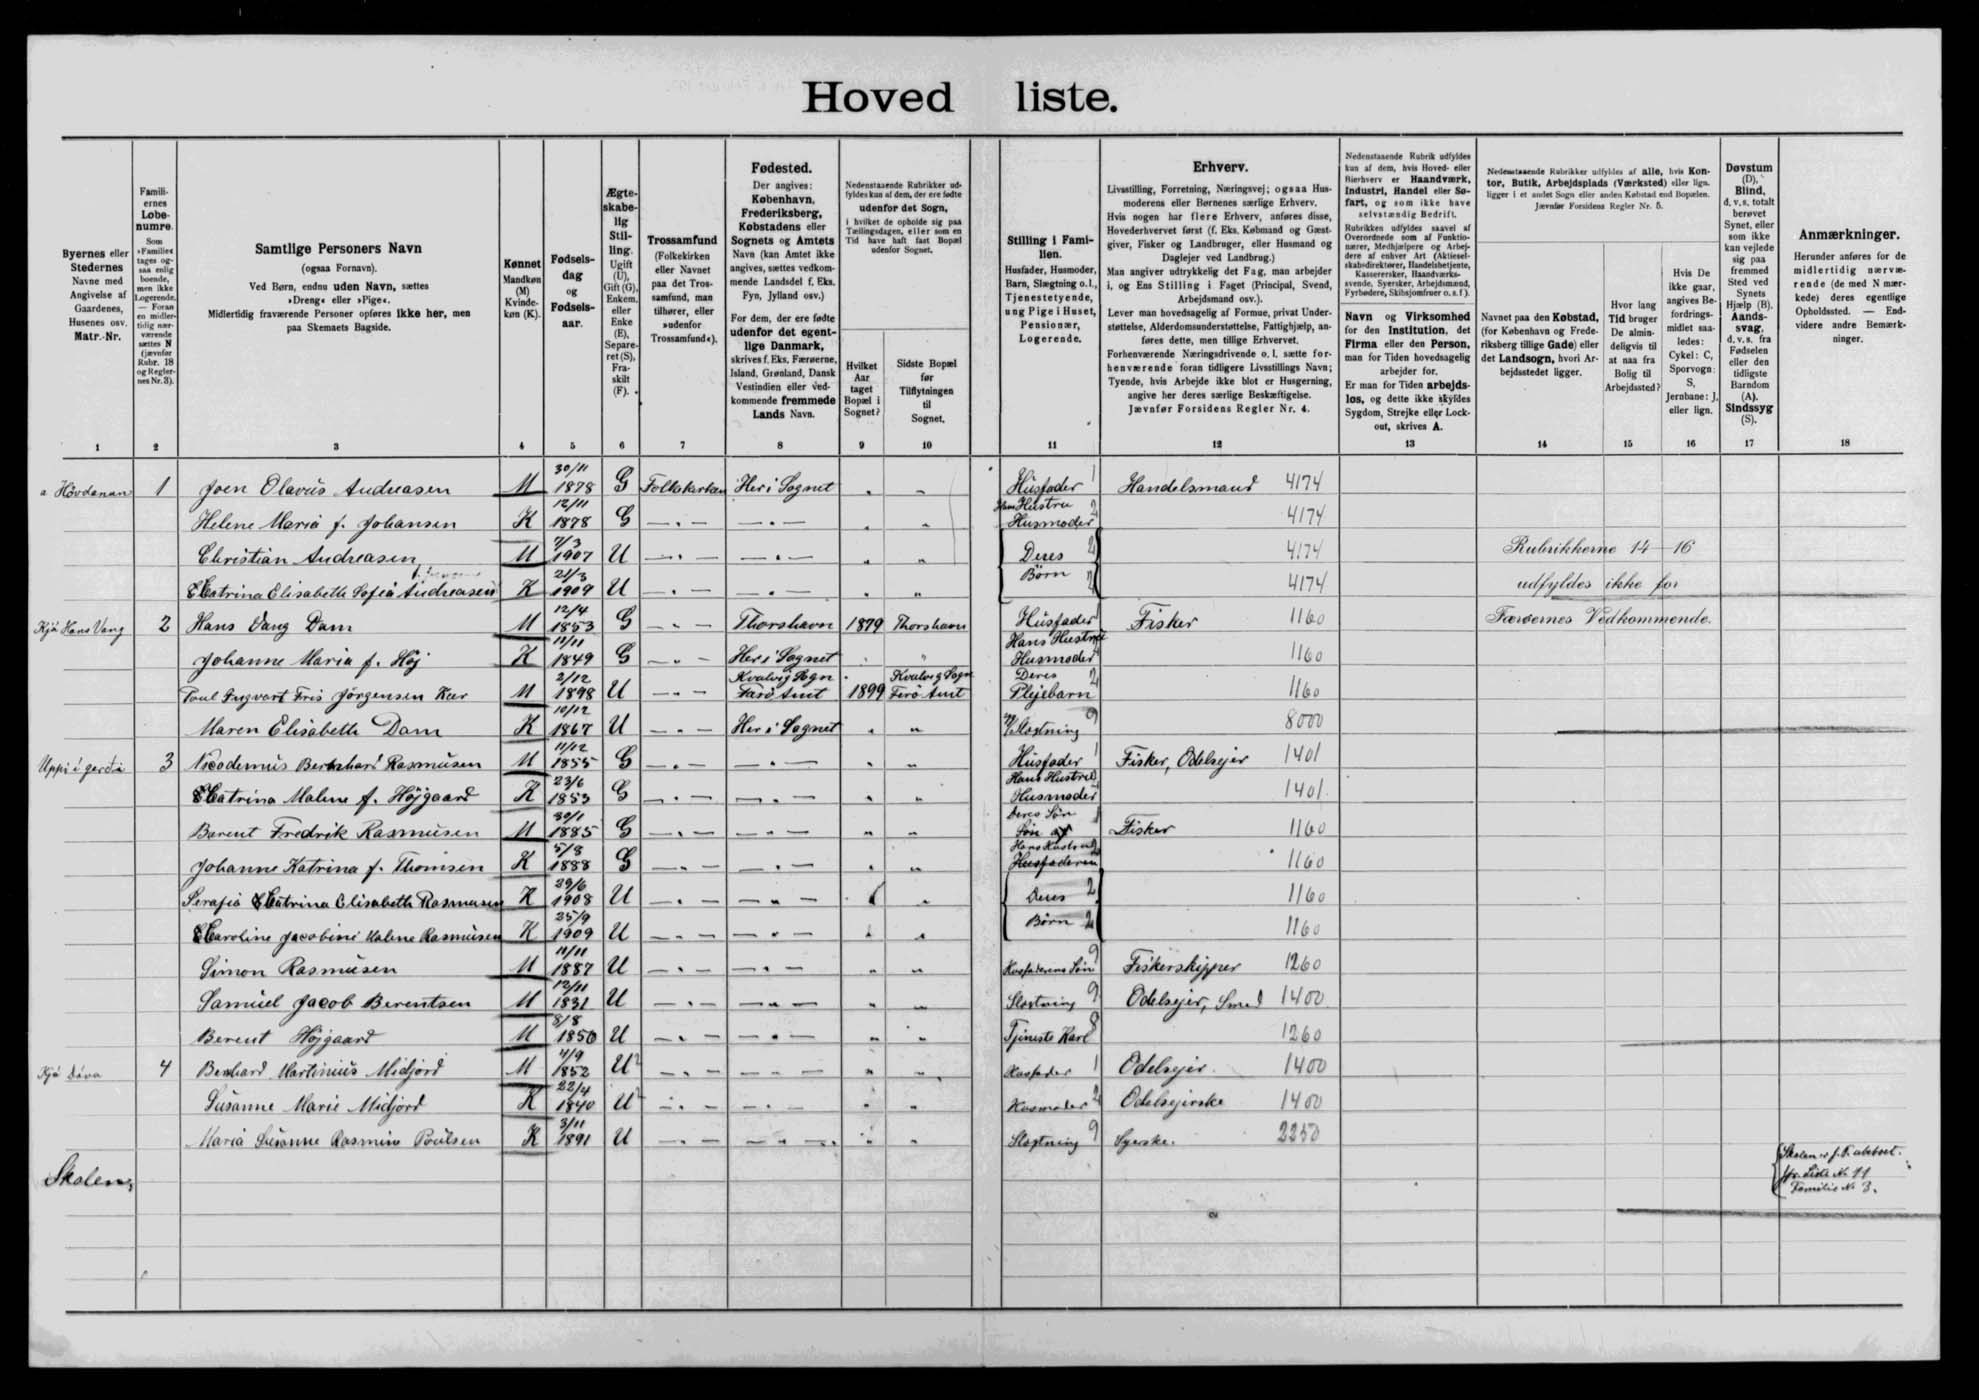 Hoved liste.
Byernes eller Stedernes Navne med Angivelse af Gaardenes, Husenes osv. Matr.-Nr.
Familiernes Lobenumre.
Som »Familie« tages ogsaa enlig boende, men ikke Logerende. — Foran en midlertidig nærværende sættes N (jævnfør Rubr. 18 og Regler nes Nr. 3).
Samtlige Personers Navn
(ogsaa Fornavn).
Ved Børn, endnu uden Navn, sættes
»Dreng« eller »Pige«.
Midlertidig fraværende Personer opføres ikke her, men
paa Skemaets Bagside.
Kønnet
Mandkøn (M) Kvindekøn (K).
Fødselsdag og Fødselsaar.
Ægteskabelig Stilling.
Ugift (U), Gift (G), Enkem. eller Enke (E), Separeret (S), Fraskilt (F).
Trossamfund
(Folkekirken eller Navnet paa det Trossamfund, man tilhører, eller »udenfor Trossamfund«).
Fødested.
Der angives:
København, Frederiksberg, Købstadens eller Sognets og Amtets Navn (kan Amtet ikke angives, sættes vedkommende Landsdel f. Eks. Fyn, Jylland osv.)
For dem, der ere fødte udenfor det egentlige Danmark, skrives f. Eks. Færøerne, Island, Grønland, Dansk Vestindien eller vedkommende fremmede Lands Navn.
Nedenstaaende Rubrikker udfyldes kun af dem, der ere fødte
udenfor det Sogn,
i hvilket de opholde sig paa Tællingsdagen, eller som en Tid have haft fast Bopæl udenfor Sognet.
Hvilket Aar taget Bopæl i Sognet?
Sidste Bopæl før Tilflytningen til Sognet.
Stilling i Familien.
Husfader, Husmoder, Barn, Slægtning o.l., Tjenestetyende, ung Pige i Huset, Pensionær, Logerende.
Erhverv.
Livsstilling, Forretning, Næringsvej; ogsaa Husmoderens eller Børnenes særlige Erhverv.
Hvis nogen har flere Erhverv, anføres disse, Hovederhvervet først (f. Eks. Købmand og Gæstgiver, Fisker og Landbruger, eller Husmand og Daglejer ved Landbrug.)
Man angiver udtrykkelig det Fag, man arbejder i, og Ens Stilling i Faget (Principal, Svend, Arbejdsmand osv.).
Lever man hovedsagelig af Formue, privat Understøttelse, Alderdomsunderstøttelse, Fattighjælp, anføres dette, men tillige Erhvervet.
Forhenværende Næringsdrivende o. l. sætte forhenværende foran tidligere Livsstillings Navn; Tyende, hvis Arbejde ikke blot er Husgerning, angive her deres særlige Beskæftigelse.
Jævnfør Forsidens Regler Nr. 4.
Nedenstaaende Rubrik udfyldes kun af dem, hvis Hoved- eller Bierhverv er Haandværk, Industri, Handel eller Søfart, og som ikke have selvstændig Bedrift.
Rubrikken udfyldes saavel af Overordnede som af Funktionærer, Medhjælpere og Arbejdere af enhver Art (Aktieselskabsdirektører, Handelsbetjente, Kasserersker, Haandværkssvende, Syersker, Arbejdsmænd, Fyrbødere, Skibsjomfruer o. s. f.).
Navn og Virksomhed for den Institution, det Firma eller den Person, man for Tiden hovedsagelig arbejder for.
Er man for Tiden arbejdsløs, og dette ikke skyldes Sygdom, Strejke eller Lockout, skrives A.
Nedenstaaende Rubrikker udfyldes af alle, hvis Kontor, Butik, Arbejdsplads (Værksted) eller lign. ligger i et andet Sogn eller anden Købstad end Bopælen. Jævnfør Forsidens Regler Nr. 5.
Navnet paa den Købstad, (for København og Frederiksberg tillige Gade) eller det Landsogn, hvori Arbejdsstedet ligger.
Hvor lang Tid bruger De almindeligvis til at naa fra Bolig til Arbejdssted?
Hvis De ikke gaar, angives Befordringsmidlet saaledes: Cykel: C, Sporvogn: S, Jernbane: J, eller lign.
Døvstum (D), Blind, d. v. s. totalt berøvet Synet, eller som ikke kan vejlede sig paa fremmed Sted ved Synets Hjælp (B). Aandssvag, d. v. s. fra Fødselen eller den tidligste Barndom (A). Sindssyg (S).
Anmærkninger.
Herunder anføres for de midlertidig nærværende (de med N mærkede) deres egentlige Opholdssted. — Endvidere andre Bemærkninger.
1 2 3 4 5 6 7 8 9 10 11 12 13 14 15 16 17 18
a Hövdanan 1 Joen Olavus Andreasen M 30/11 1878 G Folkekirken Her i Sognet Husfader 1 Handelsmand 4174
Helene Maria f. Johansen K 12/11 1878 G Hans Hustru Husmoder 2 4174
Christian Andreasen M 7/3 1907 U Deres 2 4174 Rubrikkerne 14 - 16
Catrina Elisabeth Sofia Andreasen K 21/3 1909 U Børn 2 4174 udfyldes ikke for
Kjá Hans Vang 2 Hans Vang Dam M 12/4 1853 G Thorshavn 1879 Thorshavn Husfader 1 Fisker 1160 Færøernes Vedkommende.
Johanne Maria f. Høj K 11/11 1849 G Her i Sognet Hans Hustru Husmoder 1160
Poul Ingvart Fris Jörgensen Kær M 2/12 1898 U Kvalvig Sogn Færö Amt 1899 Kvalvig Sogn Ferö Amt Deres Plejebarn 2 1160
Maren Elisabeth Dam K 10/12 1867 U Her i Sognet Slægtning 9 8000
Uppi í gerði 3 Nicodemus Bernhard Rasmusen M 11/12 1855 G Husfader 1 Fisker, Odelsejer 1401
Catrina Malene f. Højgaard K 23/6 1853 G Hans Hustru Husmoder 1401
Barent Fredrik Rasmusen M 30/1 1885 G Deres Søn Søn af 1 Fisker 1160
Johanne Katrina f. Thomsen K 5/8 1888 G Hans Hustru Husfaderen 1160
Serafia Catrina Elisabeth Rasmusen K 29/6 1908 U Deres 2 1160
Caroline Jacobine Malene Rasmusen K 25/9 1909 U Børn 2 1160
Simon Rasmusen M 11/11 1887 U Husfaderens Søn 9 Fiskerskipper 1260
Samuel Jacob Berentsen M 12/11 1831 U Slægtning 9 Odelsejer, Smed 1400
Berent Højgaard M 8/8 1850 U Tjeneste Karl 8 1260
Kjá Dáva 4 Bernhard Martinius Midjord M 4/9 1852 U Husfader 1 Odelsejer 1400
Susanne Marie Midjord K 22/4 1840 U Husmoder 2 Odelsejerske 1400
Maria Susanne Rasmine Poulsen K 3/11 1891 U Slægtning 9 Syerske. 2250
Skolen, Skolen er f. T. ubeboet.
jfr. Liste № 11
Familie № 3.
2